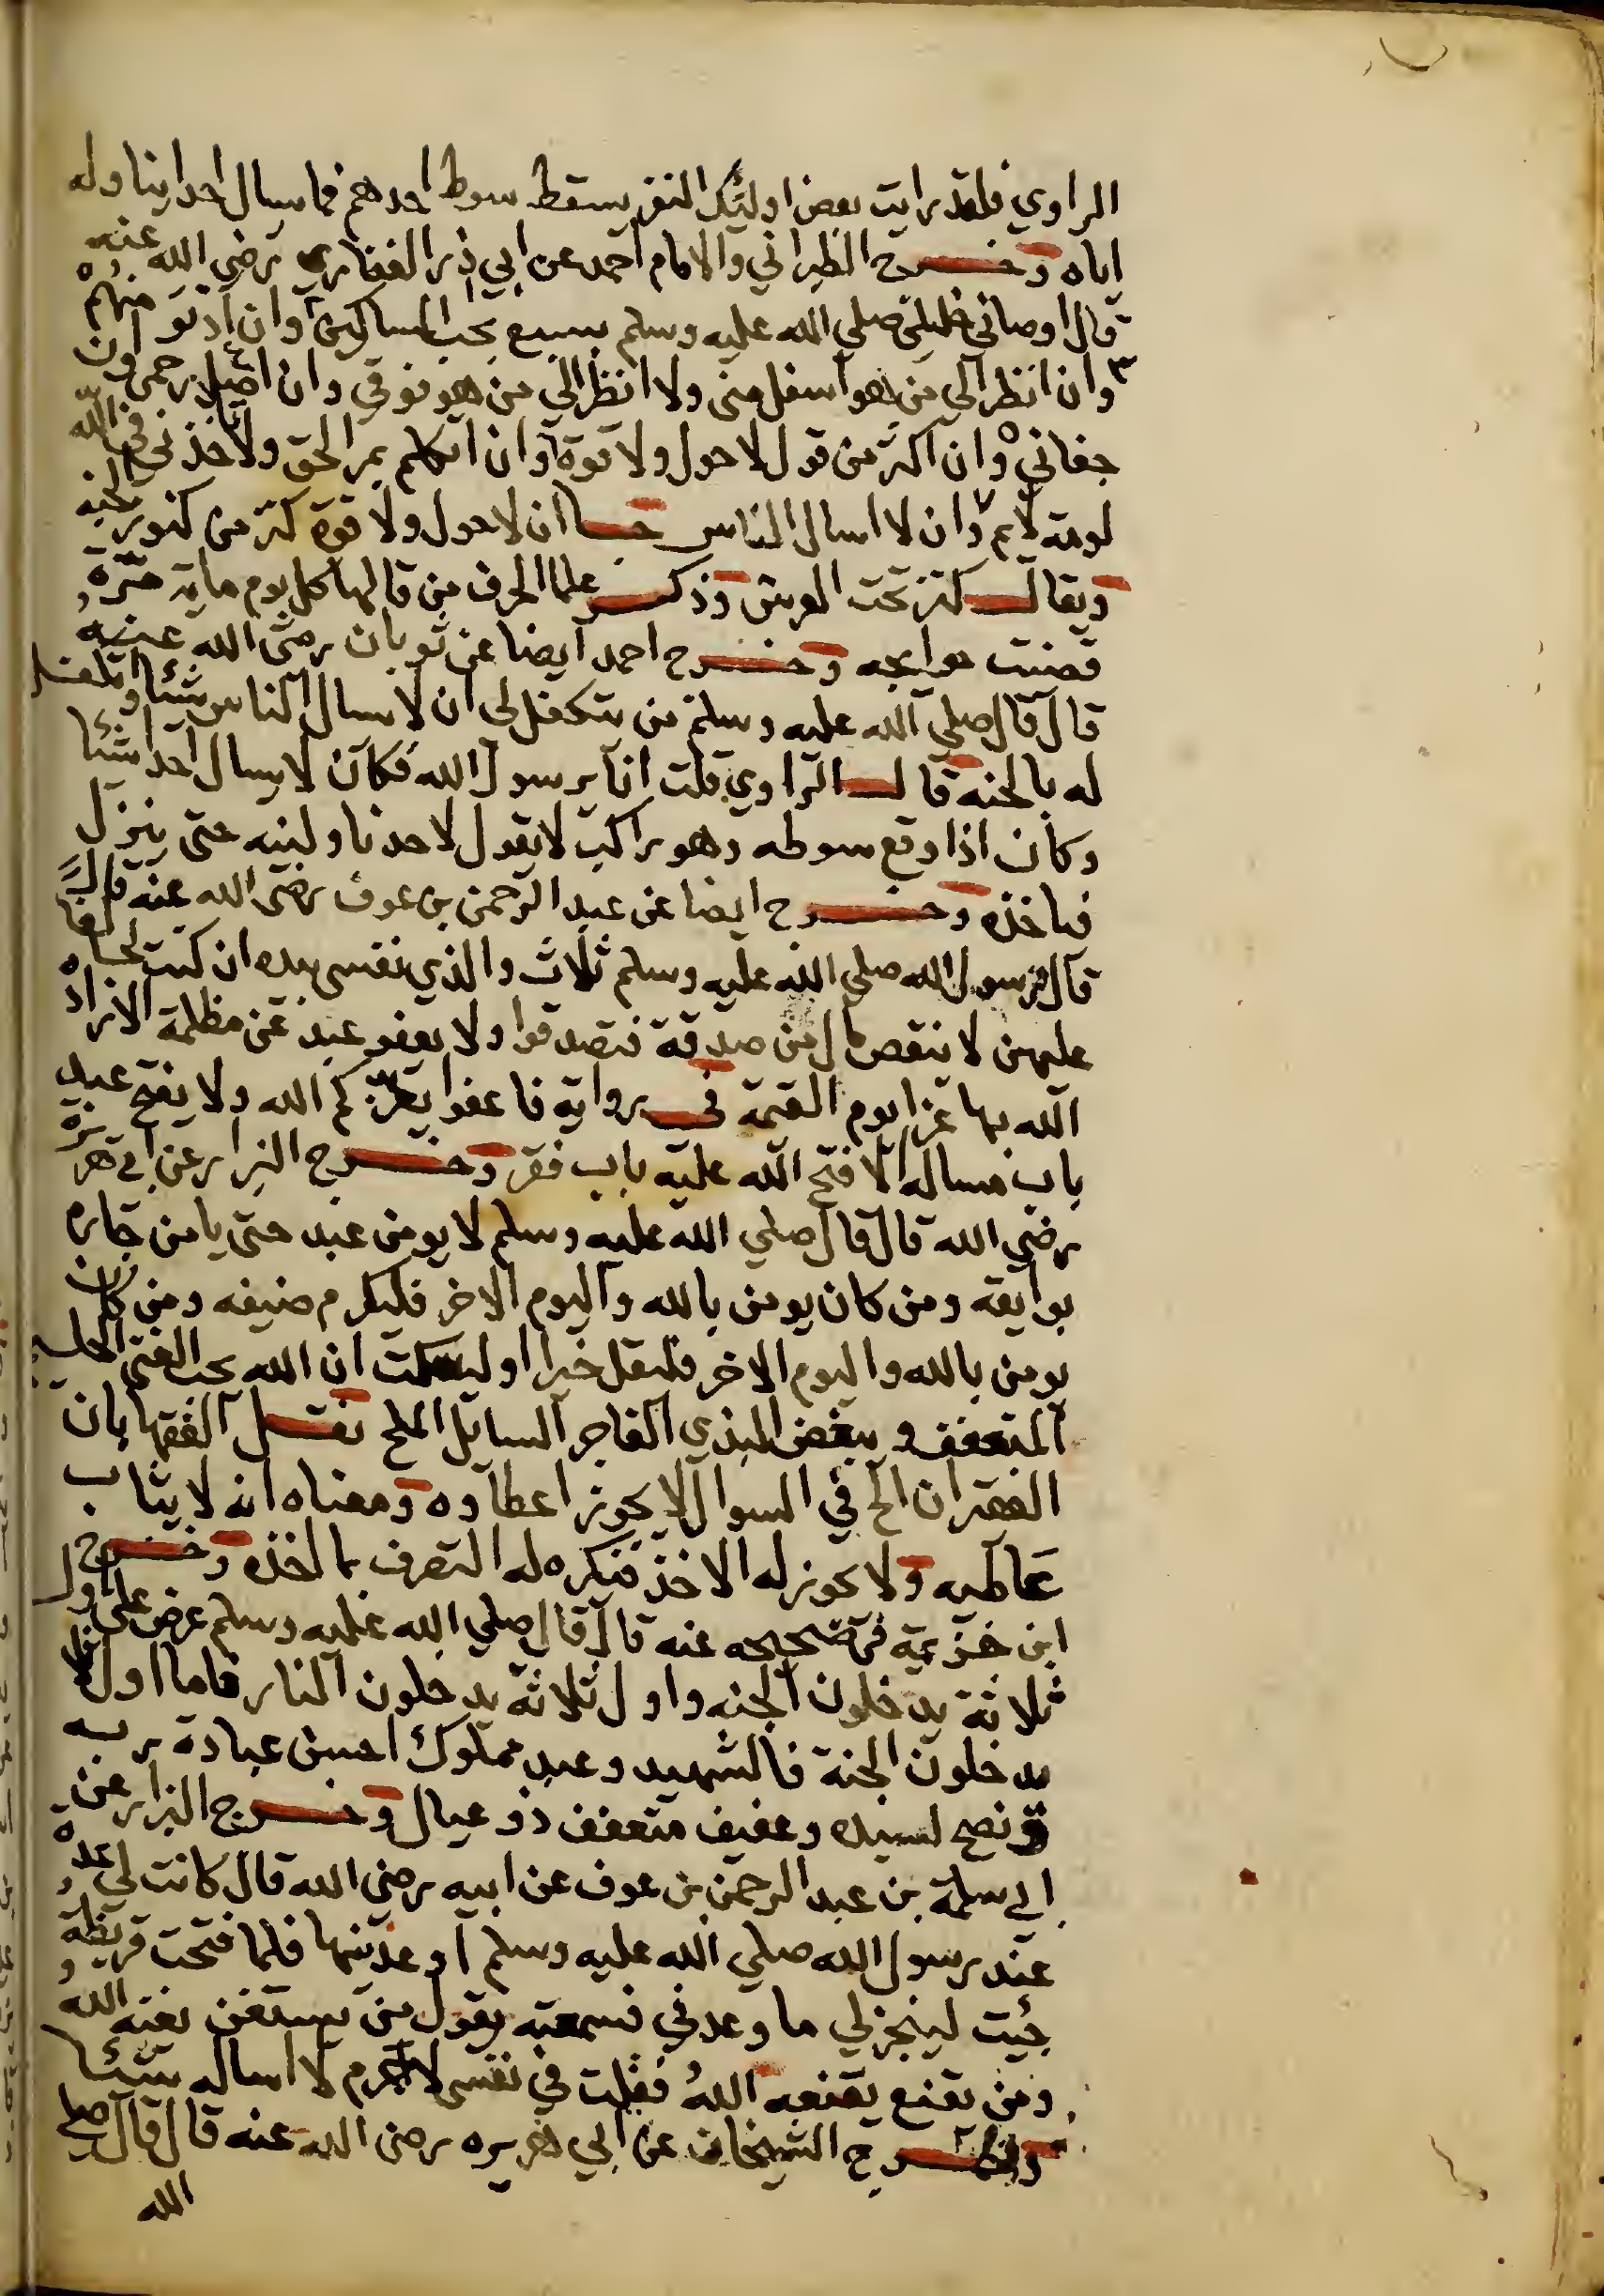 الراوي فلقد رايت بعض اوليك النفر يسقط سوط احدهم فما يسال احدا يناوله
اياه وخرج الطبراني والامام احمد عن ابي ذر الغفاري رضي الله عنه
قال اوصاني خليلي صلي الله عليه وسلم بسبع بحب المساكين وان ادنو منهم
وان انظر الي من هو اسفل مني ولا انظر الي من هو فوقي وان اصل رحمي وان
جفاني وان اكثر من قول لا حول ولا قوة وان اتكلم بمر الحق ولا تاخذني في الله
لومة لايم وان لا اسال الناس حسا ان لا حول ولا قوة كنز من كنوز الجنه
ويقال كنز تحت العرش وذكر علما الحرف من قالها كل يوم ماية مرة
قضيت حوايجه وخرج احمد ايضا عن ثوبان رضي الله عنه
قال قال صلي الله عليه وسلم من يتكفل لي ان لا يسال الناس شيئا واتكفل
له بالجنه قال الراوي قلت انا يرسول الله فكان لا يسال احدا شيئا
وكان اذا وقع سوطه وهو راكب لا يقول لاحد ناولنيه حتي ينزل
فياخذه وخرج ايضا عن عبد الرحمن بن عوف رضي الله عنه قال
قال رسول الله صلي الله عليه وسلم ثلاث والذي نفسي بيده ان كنت لحالفا
عليهن لا ينقص مال من صدقة فتصدقوا ولا يعفو عبد عن مظلمة الا زاده
الله بها عزا يوم القيمة في رواية فاعفوا يعزكم الله ولا يفتح عبد
باب مساله الا فتح الله عليه باب فقر وخرج البزار عن ابي هريرة
رضي الله قال قال صلي الله عليه وسلم لا يومن عبد حتي يامن جاره
بوايقه ومن كان يومن بالله واليوم الاخر فليكرم ضيفه ومن كان
يومن بالله واليوم الاخر فليقل خيرا او ليسكت ان الله يحب الغني الحليم
المتعفف ويبغض البذي الفاجر السايل الملح نقل الفقها بان
الفقير ان الح في السوال لا يجوز اعطاوه ومعناه انه لا يثاب
عاطيه ولا يجوز له الاخذ فيكره له التصرف بما اخذه وخرج
ابن خزيمة في صحيحه عنه قال قال صلي الله عليه وسلم عرض علي اول
ثلاثة يدخلون الجنه واول ثلاثة يدخلون النار فاما اول ثلاثة
يدخلون الجنة فالشهيد وعبد مملوك احسن عبادة ربه
ونصح لسيده وعفيف متعفف ذو عيال وخرج البزار عن
ابي سلمة بن عبد الرحمن بن عوف عن ابيه رضي الله قال كانت لي عدة
عند رسول الله صلي الله عليه وسلم اوعدنيها فلما فتحت قريظة
جيت لينجز لي ما وعدني فسمعته يقول من يستغن يغنه الله
ومن يقنع يقنعه الله فقلت في نفسي لا جرم لا اساله شيئا
وخرج الشيخان عن ابي هريره رضي الله عنه قال قال صلي
الله